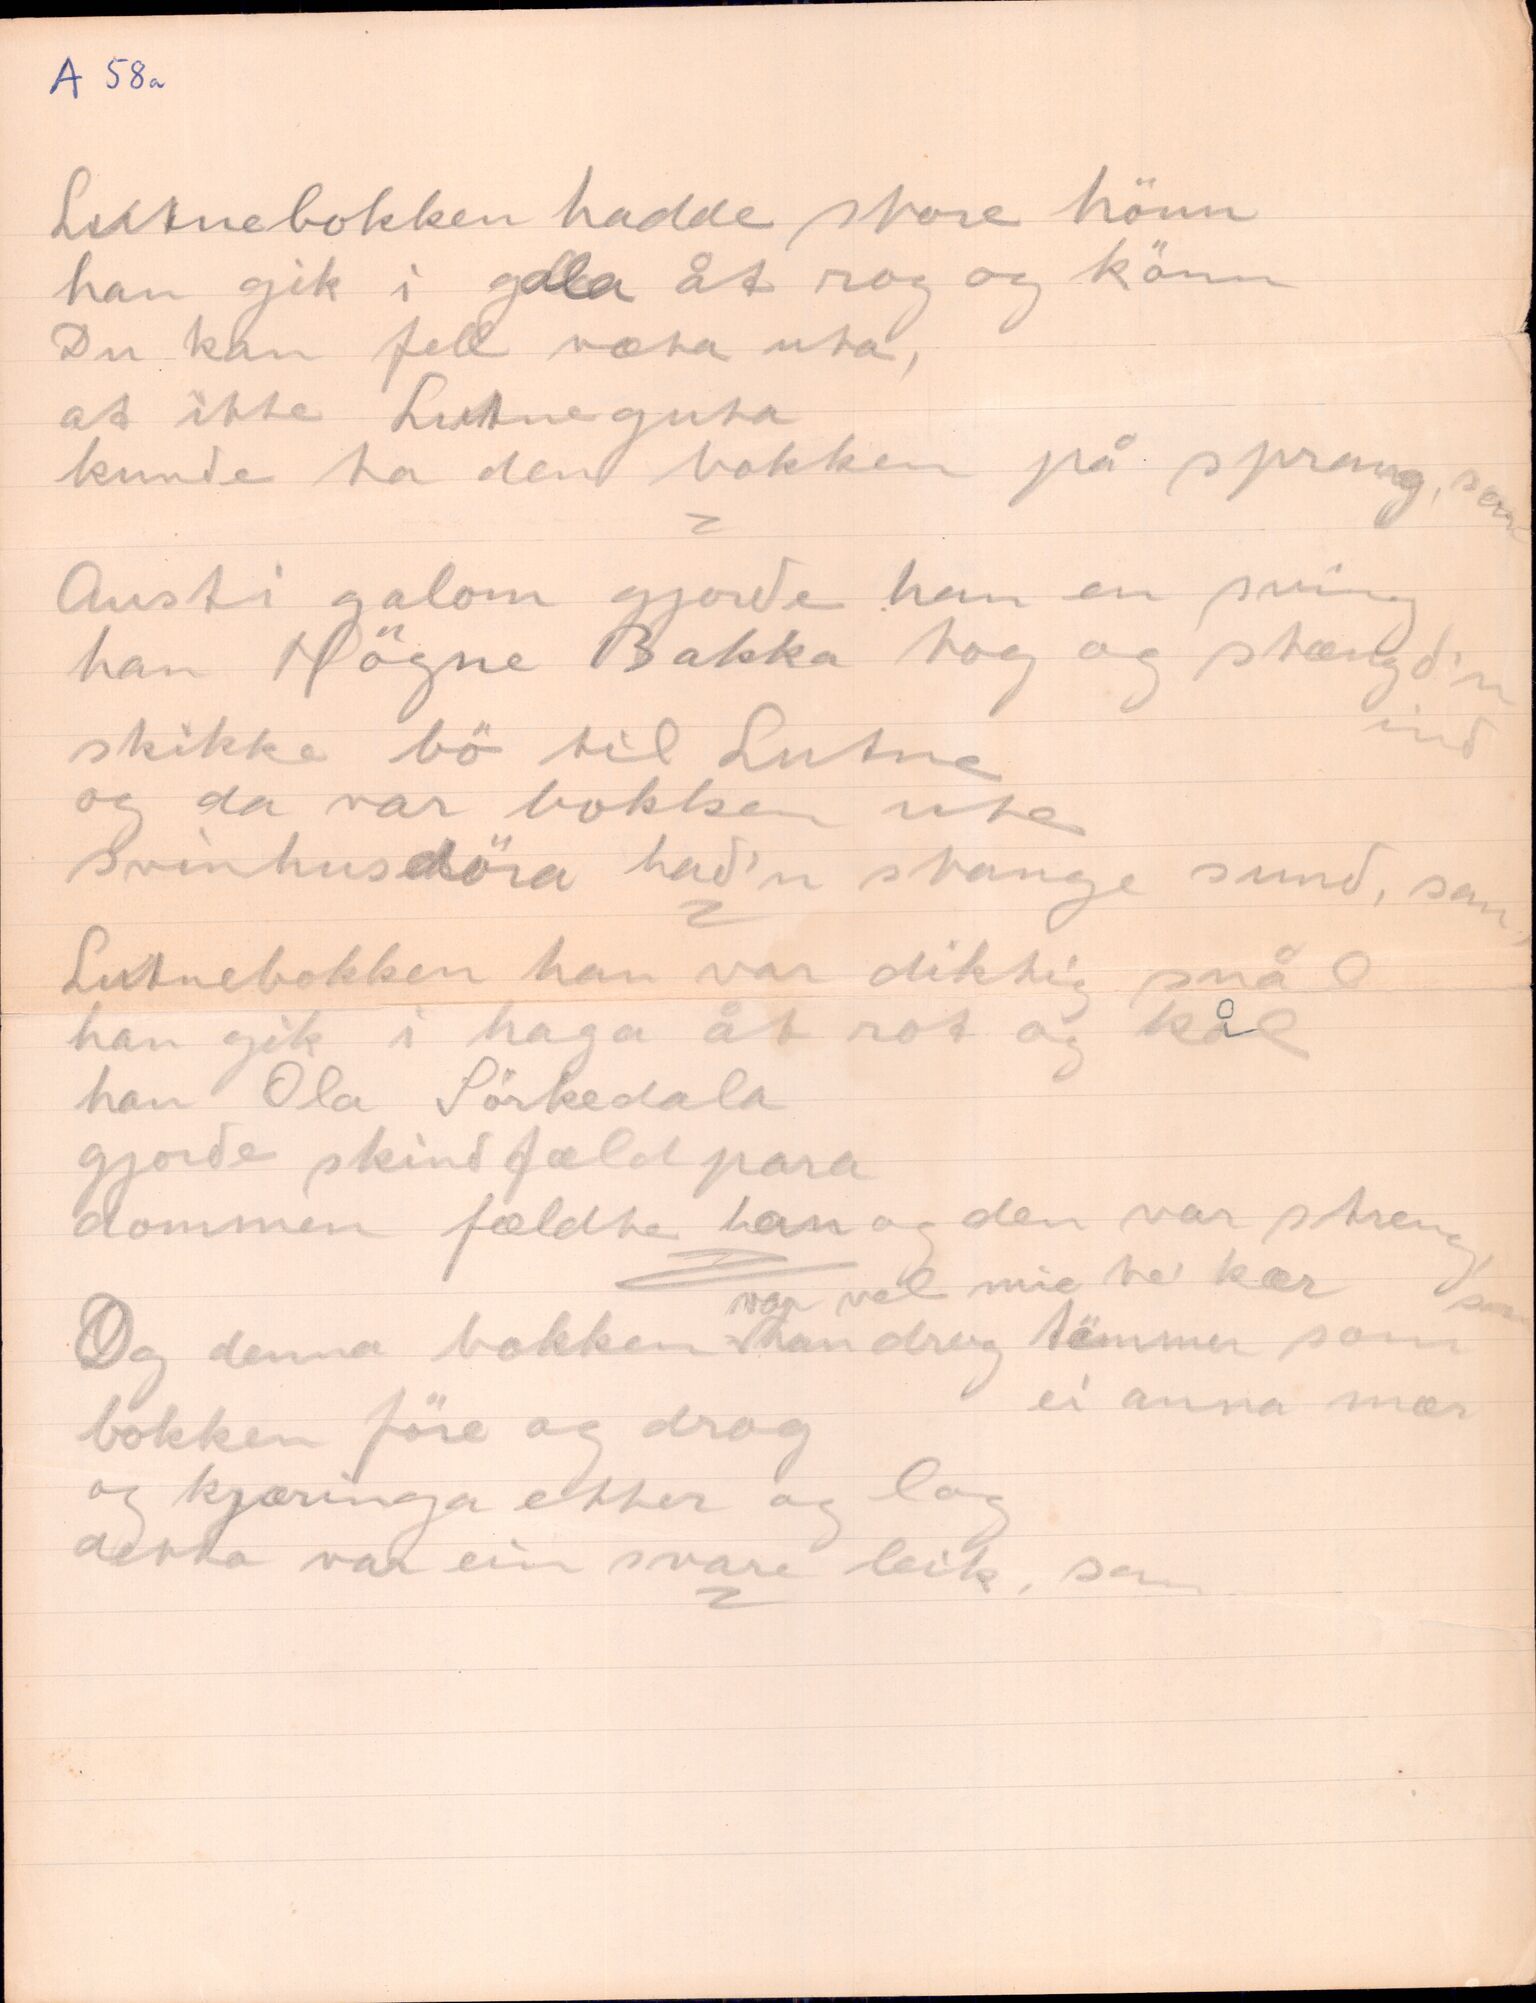 A 58a
Lutnebokken hadde store hönn
han gjik i gala åt rog og könn
Du kan fell væta uta,
at itte Lutneguta
kunde ta den bokken på sprang, san
Aust i galom gjorde han en sving
han Högne Bakka tog og stængd'n
ind
skikke bö til Lutne
og da var bokken ute
svinhusdöra had'n stange sund, san,
Lutnebokken han var diktig snål
han gjik i haga åt rot og kål
han Ola Sörkedala
gjorde skindfæld para
dommen fældte han og den var streng, san
var vel mie te' kær
Og denna bokken han drog tömmer som
ei anna mær
bokken före og drog
og kjæringa etter og log
detta var ein svare leik, san